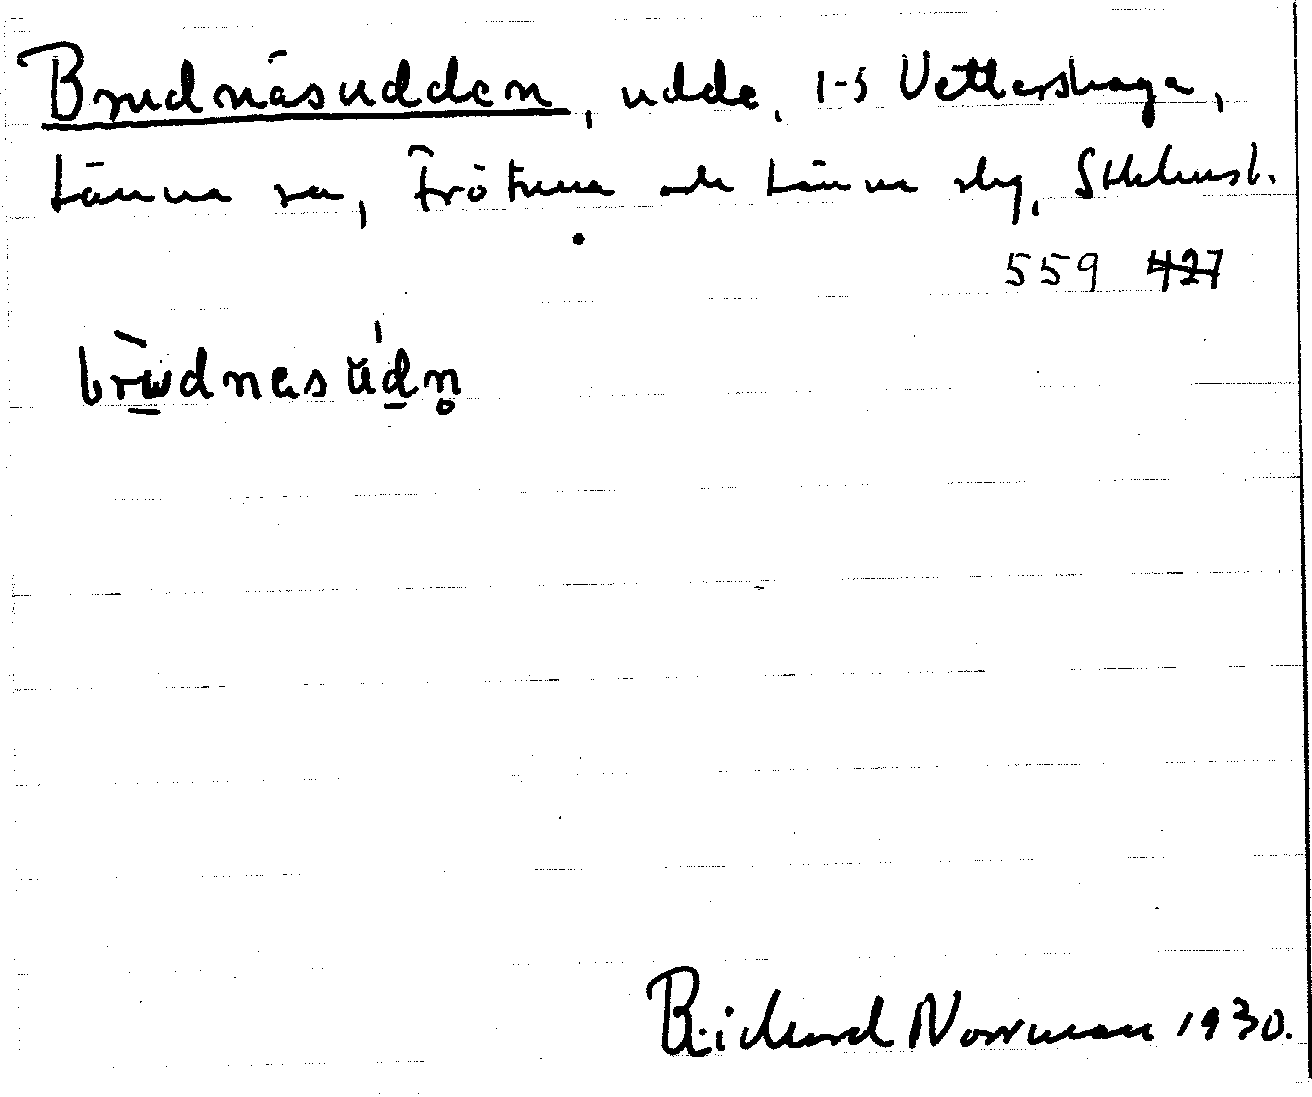 Brudnäsudden, udde, 1-5 Vettershaga,
Länna sn, Frötuna och Länna slg, Sthlmsl.
559 427
brudnesudn
Richard Norrman 1930.